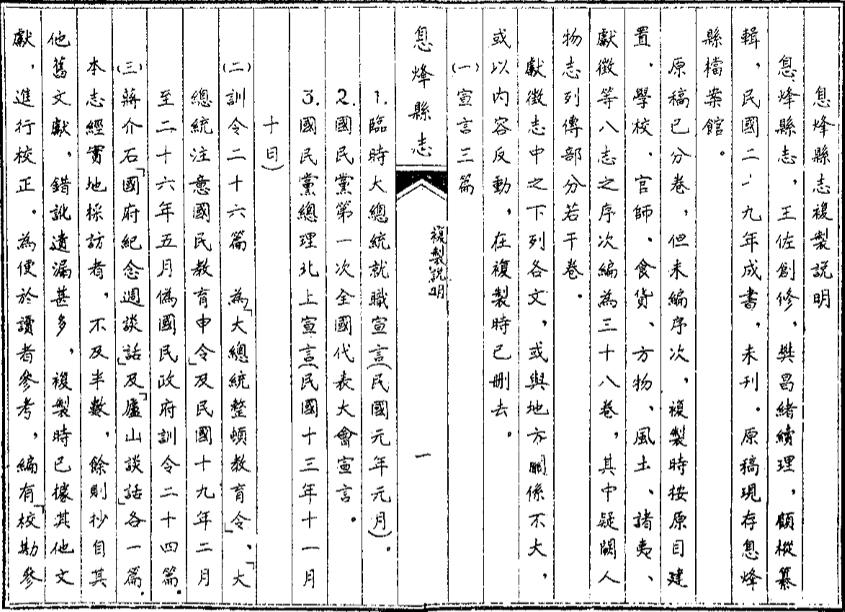 息烽縣志複製説明
息烽縣志，王佐創修，樊昌緒續理，顧樅纂
輯，民國二十九年成書，未刊。原稿現存息烽
縣檔案館。
原稿已分卷，但未編序次，複製時按原目建
置、學校、官師、食貨、方物、風土、諸夷、
獻徵等八志之序次編為三十八卷，其中疑闕人
物志列傳部分若干卷。
獻徵志中之下列各文，或與地方關係不大，
或以内容反動，在複製時已刪去。
(一)宣言三篇
息烽縣志
複製説明
一
1.臨時大總統就職宣言(民國元年元月)。
2.國民黨第一次全國代表大會宣言。
3.國民黨總理北上宣言(民國十三年十一月
十日)
(二)訓令二十六篇 為「大總統整頓教育令」、「大
總統注意國民教育申令」及民國十九年二月
至二十六年五月偽國民政府訓令二十四篇。
(三)蔣介石「國府紀念週談話」及「廬山談話」各一篇。
本志經實地採訪者，不及半數，餘則抄自其
他舊文獻，錯訛遺漏甚多，複製時已據其他文
獻，進行校正。為便於讀者參考，編有「校勘參